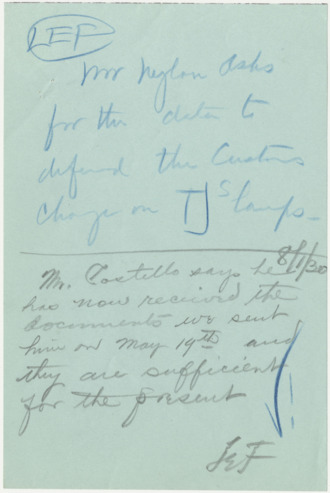 LEF
Mr Nylon Asks
for the data to
defend the Customs
charge on TJ Stamps
8/1/30
Mr. Costello says he
has now received the
documents we sent
him on May 19th and
they are sufficient
for the present
LEF